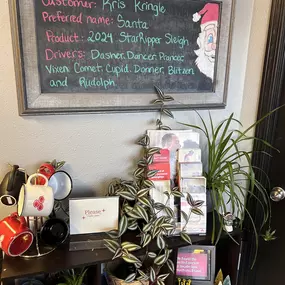 Customer: Kris Kringle
Preferred name: Santa
Product: 2024 StarRipper Sleigh
Drivers: Dasher, Dancer, Prancer
Vixen, Comet, Cupid, Donner, Blitzen
and Rudolph.
Please